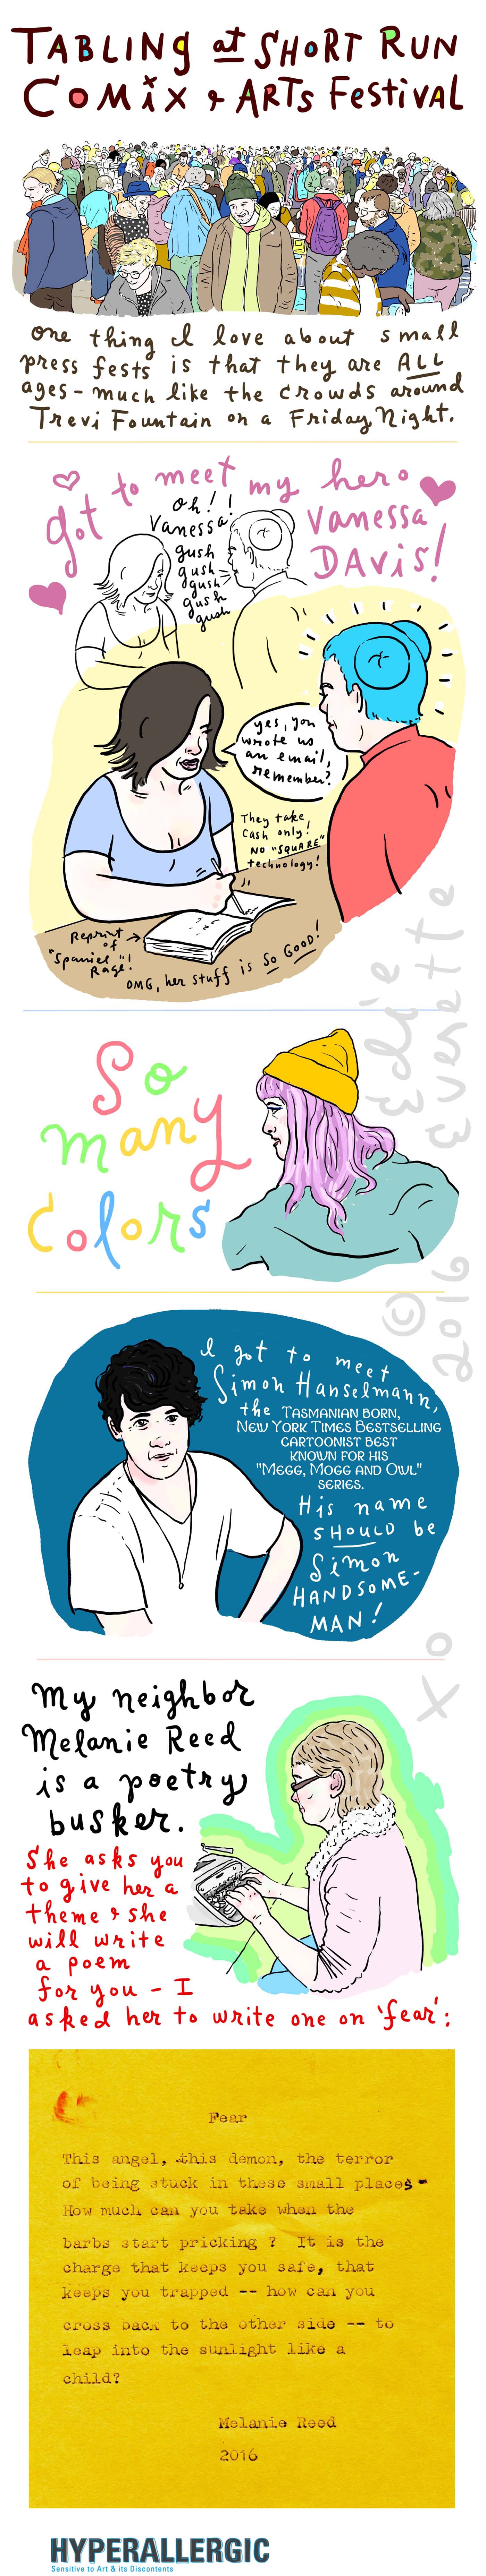 TABLING at SHORT RUN
COMIX & ARTS FESTIVAL
one thing I love about small
press fests is that they are ALL
ages - much like the crowds around
Trevi Fountain on a Friday Night.
got to meet my hero
Vanessa
DAVIS!
oh!!
Vanessa!
gush
gush
gush
gush
gush
yes, you
wrote us
an email,
remember?
They take
cash only!
NO "SQUARE"
technology!
Reprint
of
"Spaniel
Rage"!
OMG, her stuff is So GOOD!
So
many
Colors
I got to meet
Simon Hanselmann,
the TASMANIAN BORN,
NEW YORK TIMES BESTSELLING
CARTOONIST BEST
KNOWN FOR HIS
"MEGG, MOGG AND OWL"
SERIES.
His name
SHOULD be
Simon
HANDSOME-
MAN!
© Edie Everette
2016
XO
My neighbor
Melanie Reed
is a poetry
busker.
She asks you
to give her a
theme & she
will write
a poem
for you - I
asked her to write one on 'fear':
Fear
This angel, this demon, the terror
of being stuck in these small places-
How much can you take when the
barbs start pricking ? It is the
charge that keeps you safe, that
keeps you trapped -- how can you
cross back to the other side -- to
leap into the sunlight like a
child?
Melanie Reed
2016
HYPERALLERGIC
Sensitive to Art & its Discontents